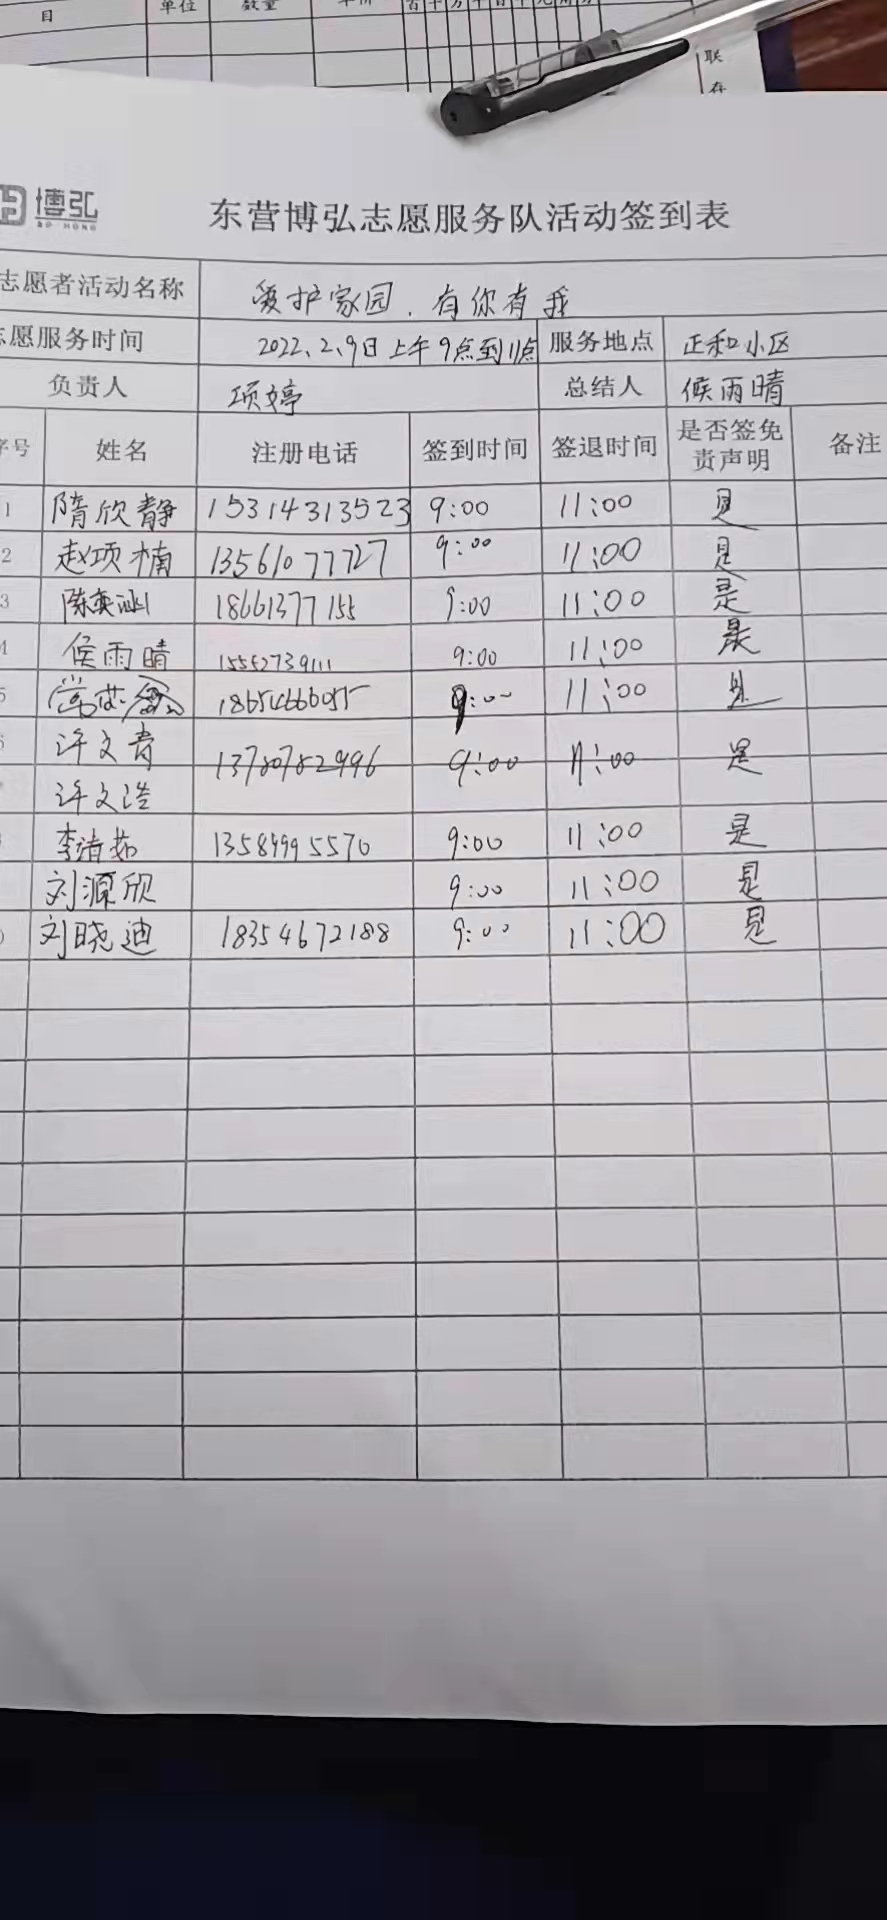 目 单位 数量 单价 百 十 万 千 百 十 元 角 分
联
存
博弘
BO HONG
东营博弘志愿服务队活动签到表
志愿者活动名称 爱护家园.有你有我
志愿服务时间 2022、2、9日上午9点到11点 服务地点 正和小区
负责人 项婷 总结人 候雨晴
序号 姓名 注册电话 签到时间 签退时间 是否签免责声明 备注
1 隋欣静 15314313523 9:00 11:00 是
2 赵项楠 13561077727 9:00 11:00 是
3 陈奕涵 18661377155 9:00 11:00 是
4 侯雨晴 15552739111 9:00 11:00 是
5 9:00 11:00 是
6 许文青 13780782996 9:00 11:00 是
许文浩
李清茹 13589995570 9:00 11:00 是
刘源欣 9:00 11:00 是
刘晓迪 18354672188 9:00 11:00 是